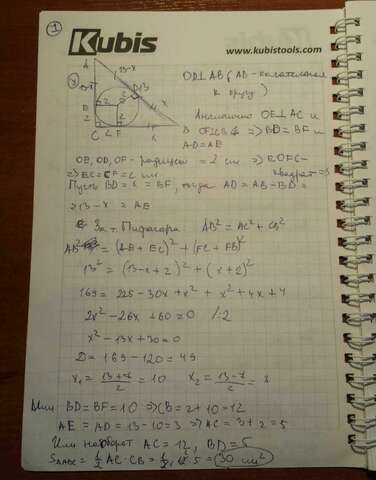 1
Kubis
www.kubistools.com
A
13-x
x
D
13
2
E
2
C 2 F
x
B
OD⊥AB (AB - касательная
к кругу)
Аналогично OE⊥AC и
OF⊥CB => BD=BF и
AD=AE
OE, OD, OF - радиусы = 2 см => EOFC -
квадрат =>
=> EC=CF=2 см
Пусть BD=x=BF, тогда AD=AB-BD=
=13-x=AE
За т. Пифагора AB²=AC²+CB²
AB²=(AE+EC)²+(FC+FB)²
13²=(13-x+2)²+(x+2)²
169=225-30x+x²+x²+4x+4
2x²-26x+60=0 /:2
x²-13x+30=0
D=169-120=49
x₁=(13+7)/2=10 x₂=(13-7)/2=3
Или BD=BF=10 => CB=2+10=12
AE=AD=13-10=3 => AC=3+2=5
Или наоборот AC=12, BD=5
S△ABC=½ AC·CB=½·12·5=30 см²